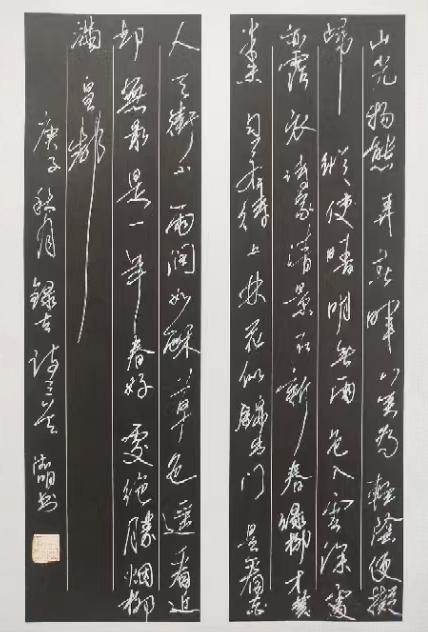 山光物態弄春暉莫為輕陰便擬
歸縱使晴明無雨色入雲深處
亦霑衣詩家清景在新春綠柳才黃
半未勻若待上林花似錦出门俱是看花
人天街小雨潤如酥草色遥看近
却無最是一年春好處絶勝烟柳
滿皇都
庚子秋月錄古诗三首